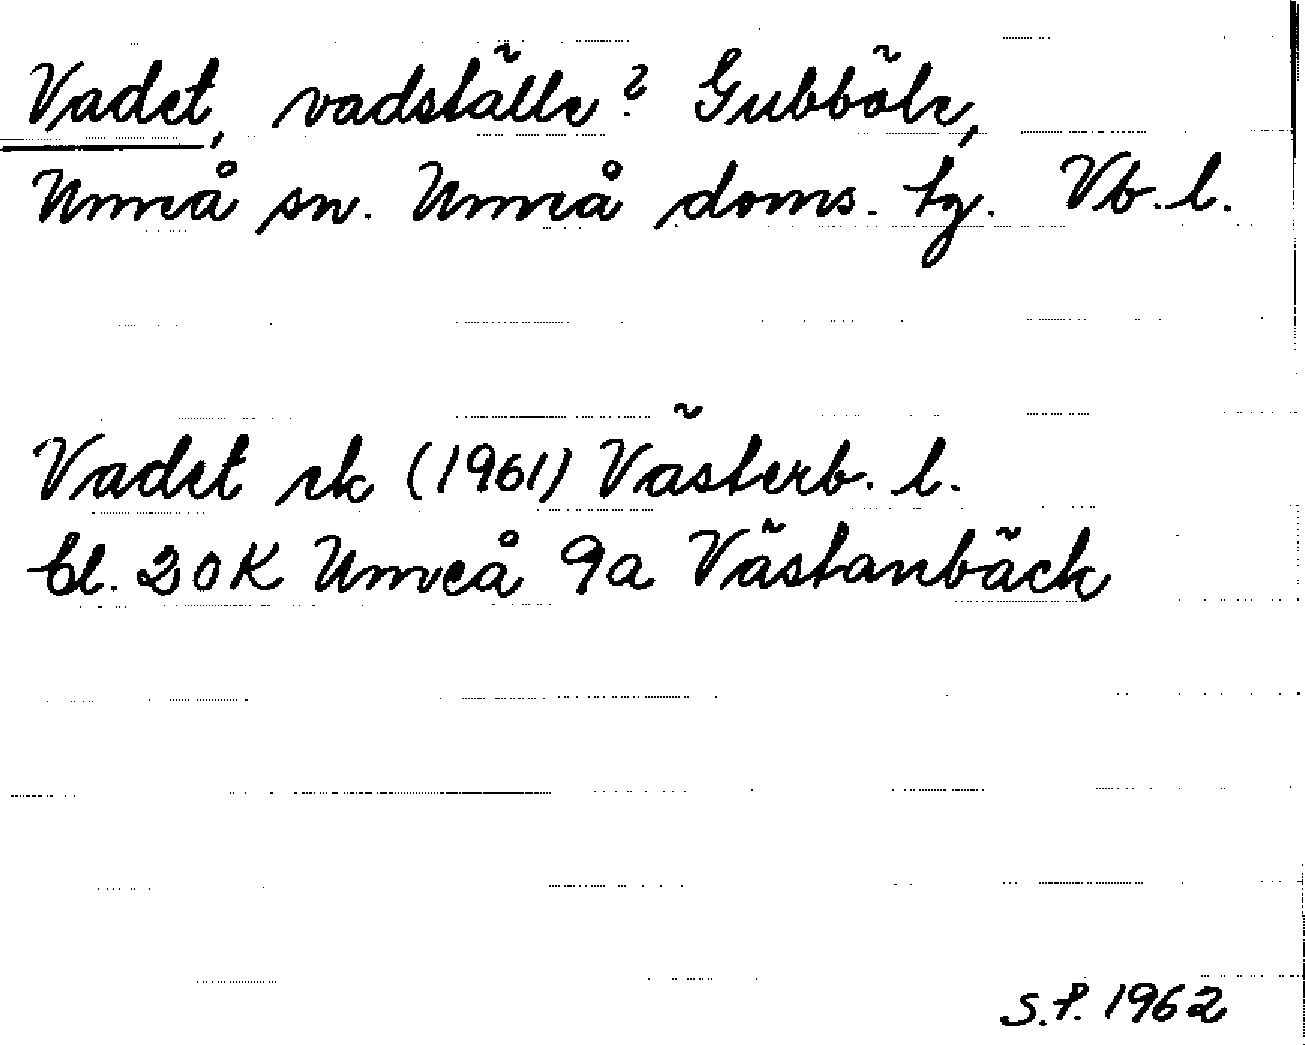 Vadet, vadställe? Gubböle,
Umeå sn. Umeå doms. tg. Vb. l.
Vadet ek (1961) Västerb. l.
bl. 20K Umeå 9a Västanbäck
S.P. 1962